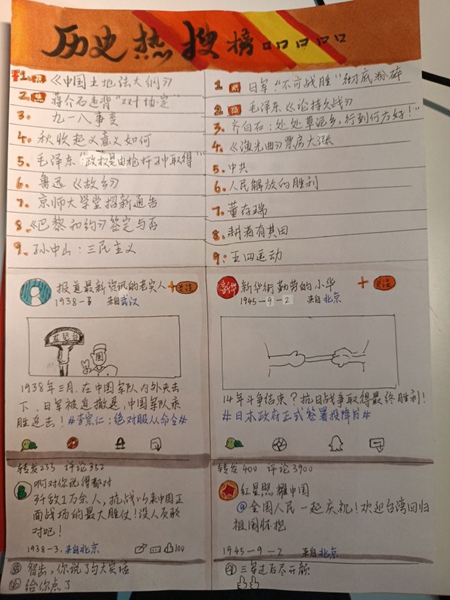 历史热搜榜
1. 《中国土地法大纲》
2. 蒋介石违背"双十协定"
3. 九一八事变
4. 秋收起义意义如何
5. 毛泽东"政权是由枪杆子中取得"
6. 鲁迅《故乡》
7. 京师大学堂招新通告
8. 《巴黎和约》签定与否
9. 孙中山：三民主义
1. 日军"不可战胜"彻底粉碎
2. 毛泽东《论持久战》
3. 齐白石：处处草泥乡，行到何方好！
4. 《渔光曲》票房大涨
5. 中共
6. 人民解放的胜利
7. 董存瑞
8. 耕者有其田
9. 五四运动
报道最新资讯的老实人 +关注
1938-3 来自武汉
1938年三月，在中国军队内外夹击
下，日军被迫撤退，中国军队乘
胜追击！#李宗仁：绝对服从命令#
转发233 评论352
啊对你说得都对
歼敌1万余人，抗战以来中国正
面战场的最大胜仗！没人反驳
对吧！
1938-3. 来自北京
100
智出，你说了句大实话
给你点了
新华
新华網勤劳的小华 +关注
1945-9-2 来自北京
14年斗争结束？抗日战争取得最终胜利！
#日本政府正式签署投降书#
转发400 评论3900
红星照耀中国
@全国人民一起庆祝！欢迎台湾回归
祖国怀抱
1945-9-2 来自北京
三军过后尽开颜